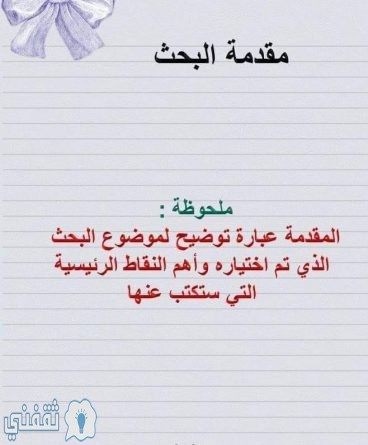 مقدمة البحث
ملحوظة :
المقدمة عبارة توضيح لموضوع البحث
الذي تم اختياره وأهم النقاط الرئيسية
التي ستكتب عنها
ثقفني